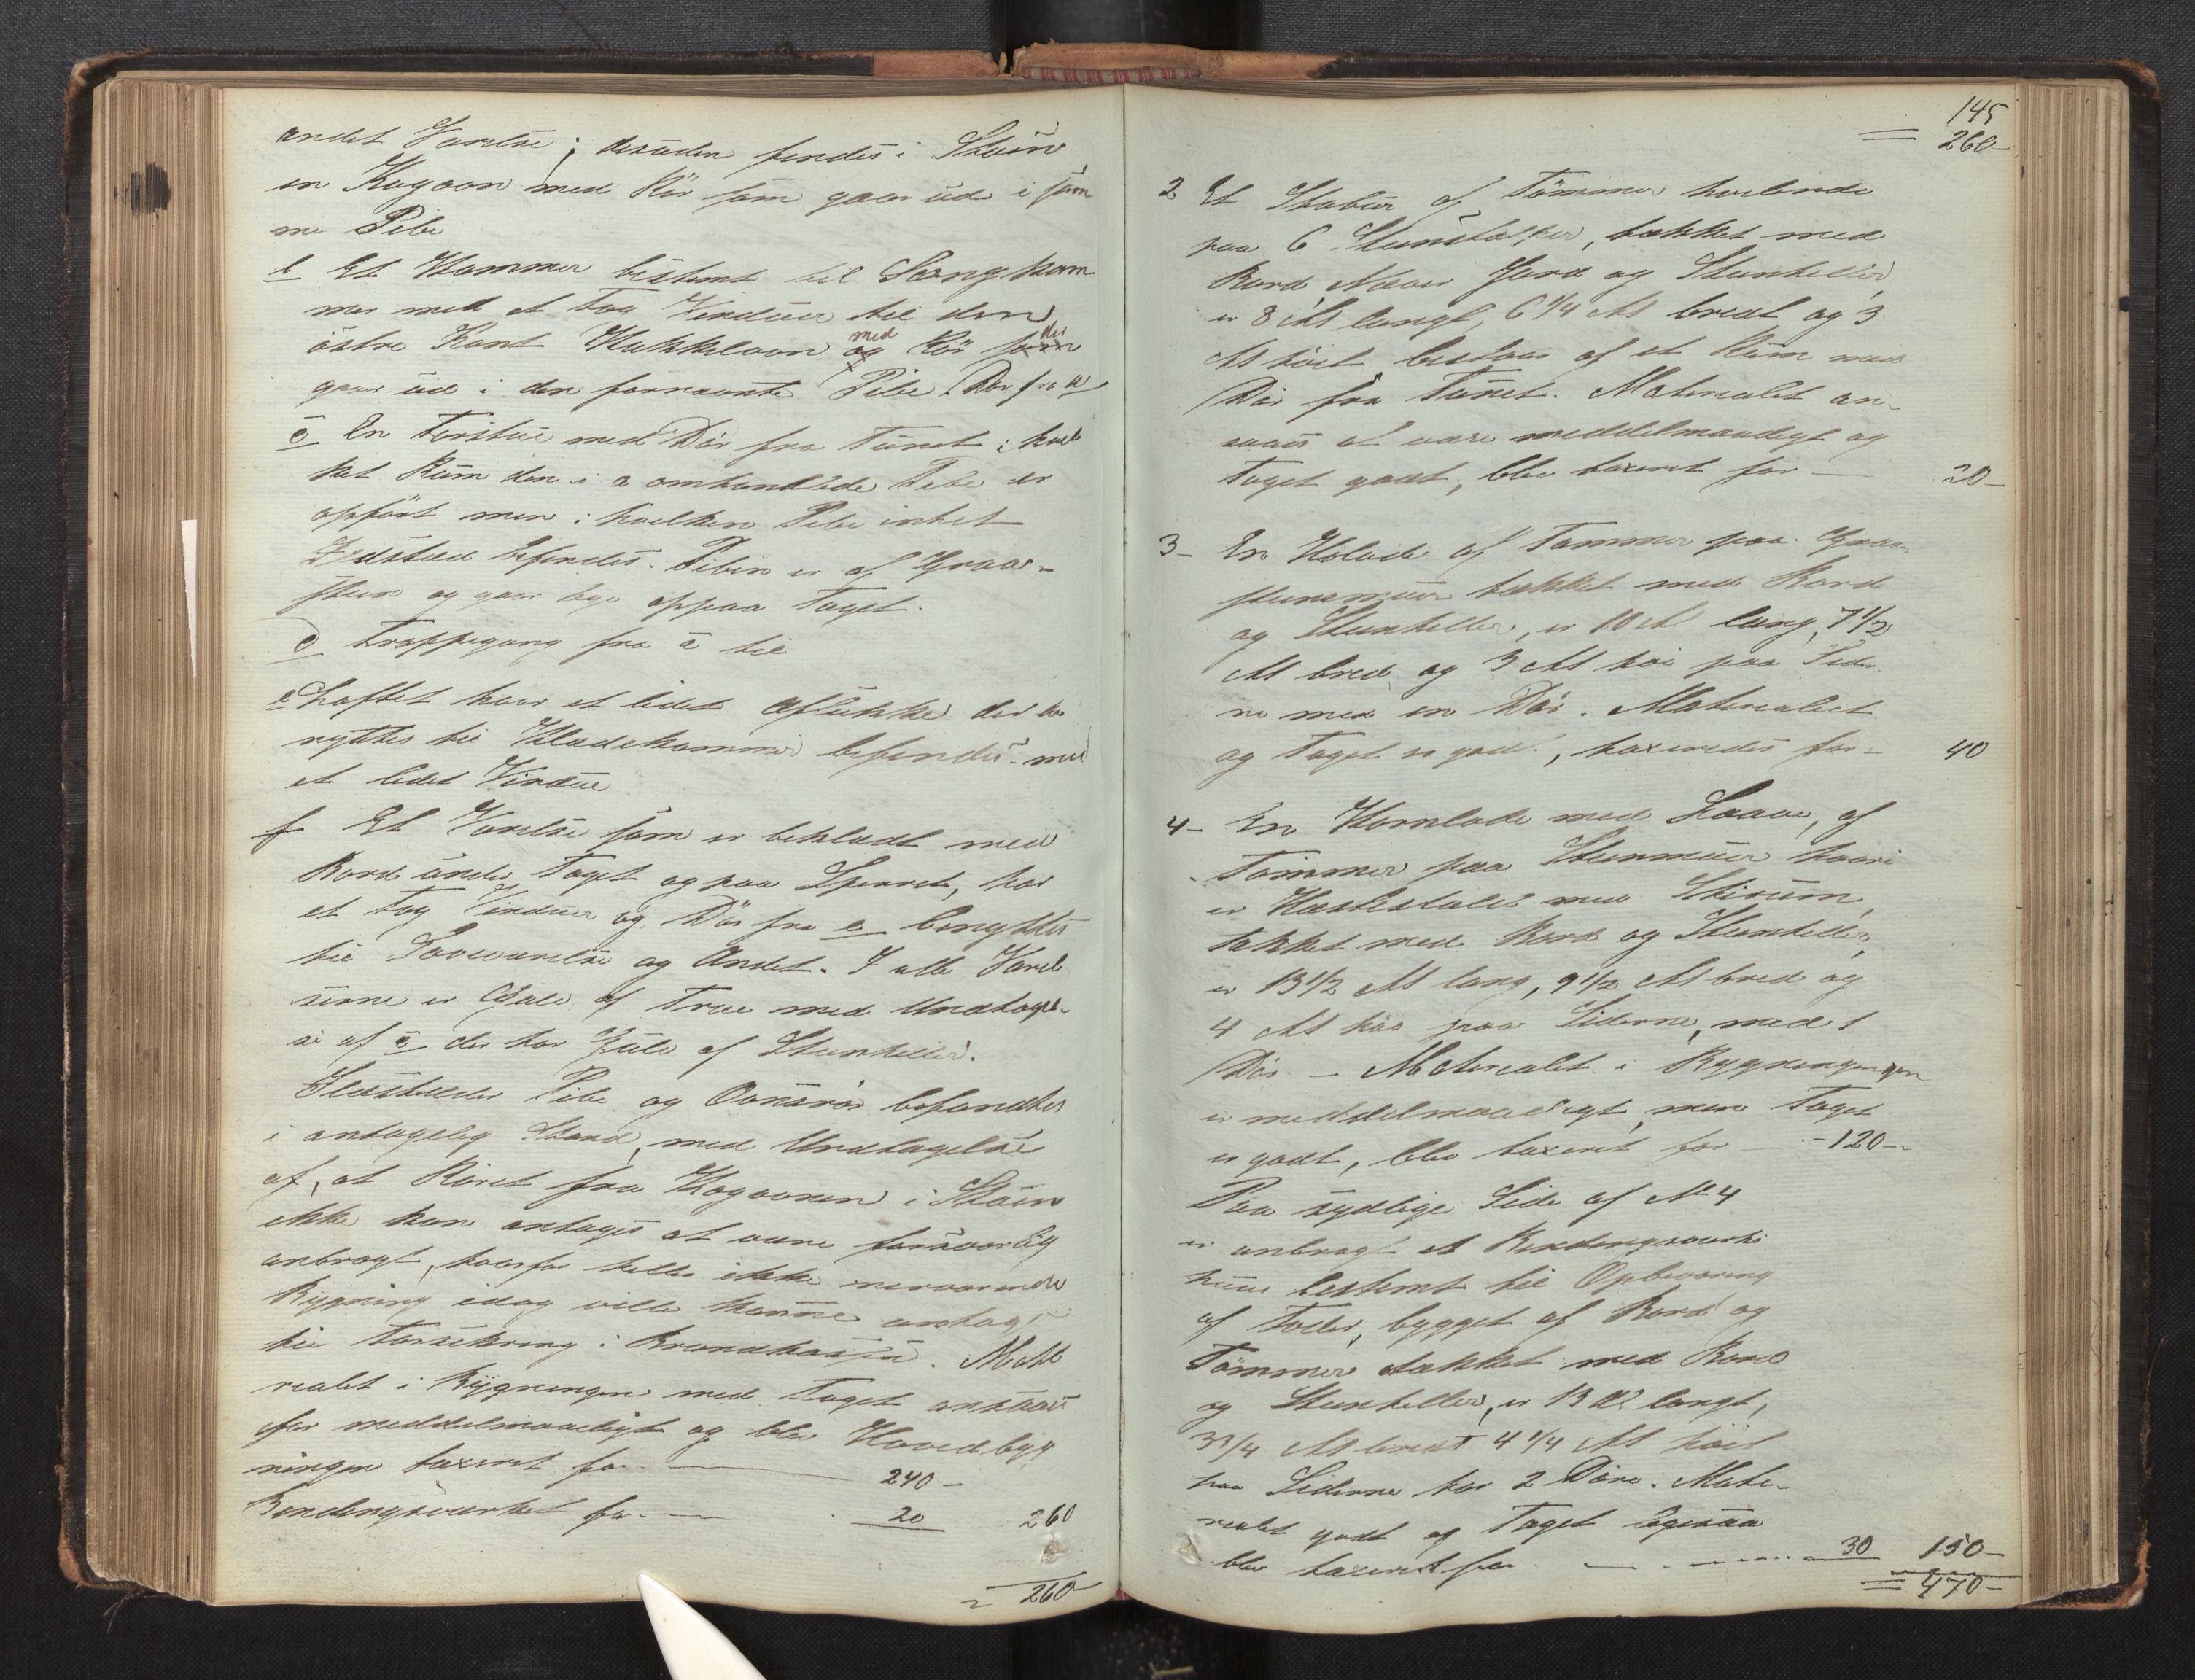 andet Værelse; desuden findes i Stuen
en Kogoon med Rör som gaar ud i sam
me Pibe
b Et Kammer bestemt til Sængkam
mer med et Fag Vinduer til den
östre Kant Kakkelovn og med Rör som der
gaar ud i den fornævnte Pibe. Dör fra a
c En Forstue med Dör fra Tunet i hvil
ket Rum den i a omhandlede Pibe er
opfört men i hvilken Pibe intet
Ildsted befindes. Piben er af Graa-
steen og gaar lige oppaa Taget.
d Trappegang fra c til
e Loftet hvor et lidet Aflukke der be
nyttes til Klædekammer befindes med
et lidet Vindue
f Et Værelse som er beklædt med
Bord under Taget og paa Sperret, har
et Fag Vinduer og Dör fra e benyttes
til Soveværelse og Andet. I alle Værel
serne er Gulv af Træe med Undtagel-
se af c der har Gulv af Steenheller.
Ildsteder Pibe og Oonsrör befandtes
i antagelig Stand, med Undtagelse
af, at Röret fra Kogoonen i Stuen
ikke kan antages at være forsvarlig
anbragt, hvorfor heller ikke nærværende
Bygning idag ville kunne antages
til Forsikring i Brandkassen. Mate
rialet i Bygningen med Taget ansaaes
for middelmaadigt og blev Hovedbyg
ningen taxeret for — 240 -
Bindingsværket for — 20 260
= 260
145
= 260
2 Et Stabur af Tömmer hvilende
paa 6 Steenstolper, tækket med
Bord Næver Jord og Steenheller,
er 8 Al langt, 6 1/4 Al bredt og 3
Al höit bestaar af et Rum med
Dör fra Tunet. Materialet an-
saaes at være middelmaadigt og
Taget godt, blev taxeret for — 20 -
3 - En Hölade af Tömmer paa Graa
steensmuur tækket med Bord
og Steenheller, er 10 Al lang, 7 1/2
Al bred og 3 Al höi paa Sider
ne med en Dör. Materialiet
og Taget er godt, taxeredes for - 40
4 - En Kornlade med Laave, af
Tömmer paa Steenmuur hvori
er Hestestald med Skirum,
tækket med Bord og Steenheller,
er 13 1/2 Al lang, 9 1/2 Al bred og
4 Al höi paa Siderne, med 1
Dör — Materialet i Bygningen
er middelmaadigt, men Taget
er godt, blev taxeret for — 120 -
Paa sydlige Side af No 4
er anbragt et Bindingsværks
huus bestemt til Opbevaring
af Foder, bygget af Bord og
Tömmer tækket med Bord
og Steenheller, er 13 Al langt,
3 3/4 Al bredt 4 1/4 Al höit
paa Siderne har 2 Döre. Mate-
rialet godt og Taget ligesaa
blev taxeret for — 30 150 -
= 470 -